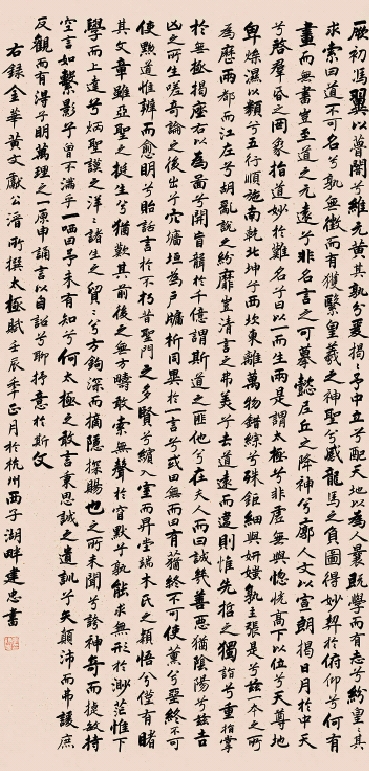 厥初馮翼以瞢闇兮維元黃其孰分揭揭予中立兮配天地以為人曩既學而有志兮紛皇皇其
求索曰道不可名兮孰無徵而有獲繄皇羲之神聖兮感龍馬之負圖得妙契於俯仰兮何有
畫而無書豈至道之元遠兮非名言之可摹懿尼丘之降神兮廓人文以宣朗揭日月於中天
兮啓羣昏之罔象指道妙於難名兮曰以一而生兩是謂太極兮非虛無與惚恍高下以位兮天尊地
卑燥濕以類兮五行順施南乾北坤兮西坎東離萬物錯綜兮殊鉅細與妍媸孰主張是兮茲一本之所
為歷兩都而江左兮胡亂說之紛靡豈清言之弗美兮去道遠而遺則惟先哲之獨詣兮重指掌
於無極揭座右以為啚兮開盲聾於千億謂斯道之匪他兮在夫人而曰誠幾善惡猶陰陽兮茲吉
凶之所生嗟奇論之後出兮穴墻垣為戶牖析同異於一言兮或曰無而曰有蕕終不可使薰兮堊終不可
使黝道惟辨而愈明兮貽話言於不朽昔聖門之多賢兮纘入室而昇堂端木氏之穎悟兮僅有睹
其文章雖亞聖之挺生兮猶歎其前後之無方疇敢索無聲於窅默兮孰能求無形於渺茫惟下
學而上達兮炳聖謨之洋洋諸生之貿貿兮方鉤深而摘隱探賜也之所未聞兮誇神奇而捷敏持
空言如繫影兮曾不滿乎一哂曰予未有知兮何太極之敢言秉思誠之遺訓兮矢顛沛而弗諼庶
反觀而有得兮明萬理之一原申誦言以自詔兮聊抒意於斯文
右錄金華黃文獻公溍所撰太極賦壬辰年正月於杭州西子湖畔建忠書